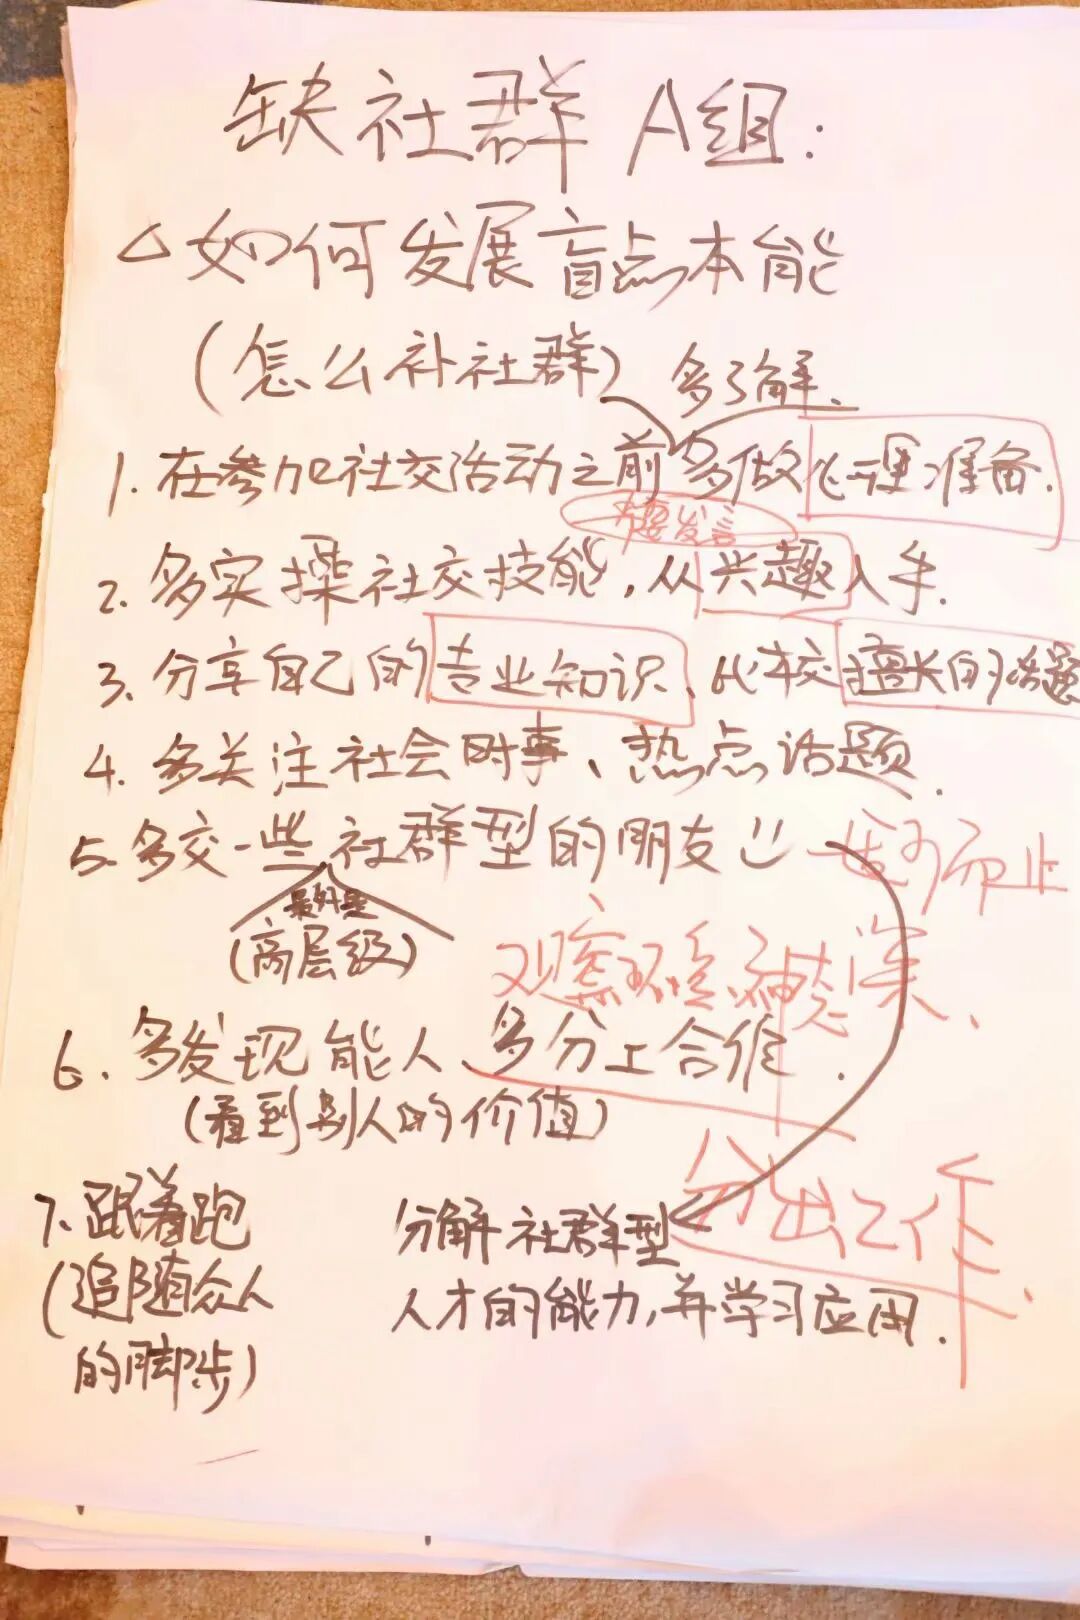 缺社群 A组:
△如何发展盲点本能
(怎么补社群) 多了解.
1. 在参加社交活动之前多做心理准备.
发言
2. 多实操社交技能,从兴趣入手.
3. 分享自己的专业知识、比较擅长的话题
4. 多关注社会时事、热点话题.
5. 多交一些社群型的朋友
适可而止
最好是
(高层级)
观察环境、神态
6. 多发现能人、多分工合作.
(看到别人的价值)
分出工作.
7. 跟着跑
(追随众人
的脚步)
分解社群型
人才的能力,并学习应用.